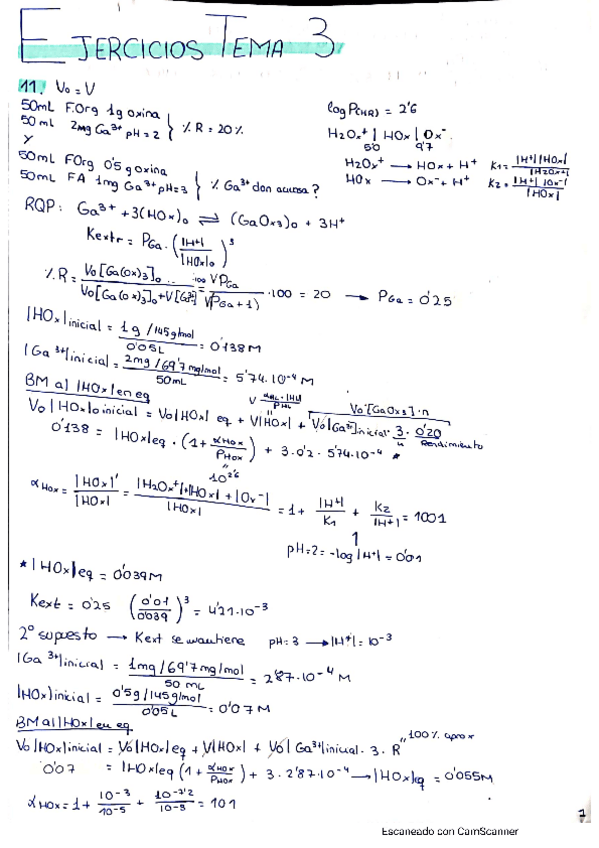 EJERCICIOS TEMA 3
11. Vo = V
50mL F.Org 1g oxina
50 mL 2mg Ga³⁺ pH = 2 } % R = 20%
Y
50mL FOrg 0'5 g oxina
50mL FA 1mg Ga³⁺ pH=3 } % Ga³⁺ don acuosa?
log P(HR) = 2'6
H2Ox⁺ | HOx | Ox⁻
5'0 9'7
H2Ox⁺ → HOx + H⁺ K1 = |H⁺||HOx| / |H2Ox⁺|
HOx → Ox⁻ + H⁺ K2 = |H⁺||Ox⁻| / |HOx|
RQP: Ga³⁺ + 3(HOx)o ⇌ (GaOx3)o + 3H⁺
Kextr = PGa · (|H⁺| / |HOx|o)³
% R = Vo[Ga(Ox)3]o / Vo[Ga(Ox)3]o + V[Ga³⁺] ·100 = VPGa / V(PGa + 1) · 100 = 20 → PGa = 0'25
|HOx|inicial = 1g / 145g/mol / 0'05L = 0'138 M
|Ga³⁺|inicial = 2mg / 69'7 mg/mol / 50mL = 5'74·10⁻⁴ M
BM al |HOx| en eq
Vo |HOx|o inicial = Vo|HOx| eq + V|HOx| + Vo|Ga³⁺|inicial · 3 · 0'20
Vo·[GaOx3]·n
Rendimiento
0'138 = |HOx|eq · (1 + αHOx / PHOx) + 3·0'2·5'74·10⁻⁴ *
10^2'6
αHOx = |HOx|' / |HOx| = |H2Ox⁺| + |HOx| + |Ox⁻| / |HOx| = 1 + |H⁺| / K1 + K2 / |H⁺| = 1001
pH=2 = -log |H⁺| = 0'01
* |HOx|eq = 0'039M
Kext = 0'25 (0'01 / 0'039)³ = 4'21·10⁻³
2º supuesto → Kext se mantiene pH = 3 → |H⁺| = 10⁻³
|Ga³⁺|inicial = 1mg / 69'7 mg/mol / 50 mL = 2'87·10⁻⁴ M
|HOx|inicial = 0'5g / 145g/mol / 0'05L = 0'07 M
BM al |HOx| en eq
Vo|HOx|inicial = Vo|HOx|eq + V|HOx| + Vo|Ga³⁺|inicial · 3 · R
100% aprox
0'07 = |HOx|eq (1 + αHOx / PHOx) + 3·2'87·10⁻⁴ → |HOx|eq = 0'055M
αHOx = 1 + 10⁻³ / 10⁻⁵ + 10⁻⁹'² / 10⁻³ = 101
1
Escaneado con CamScanner